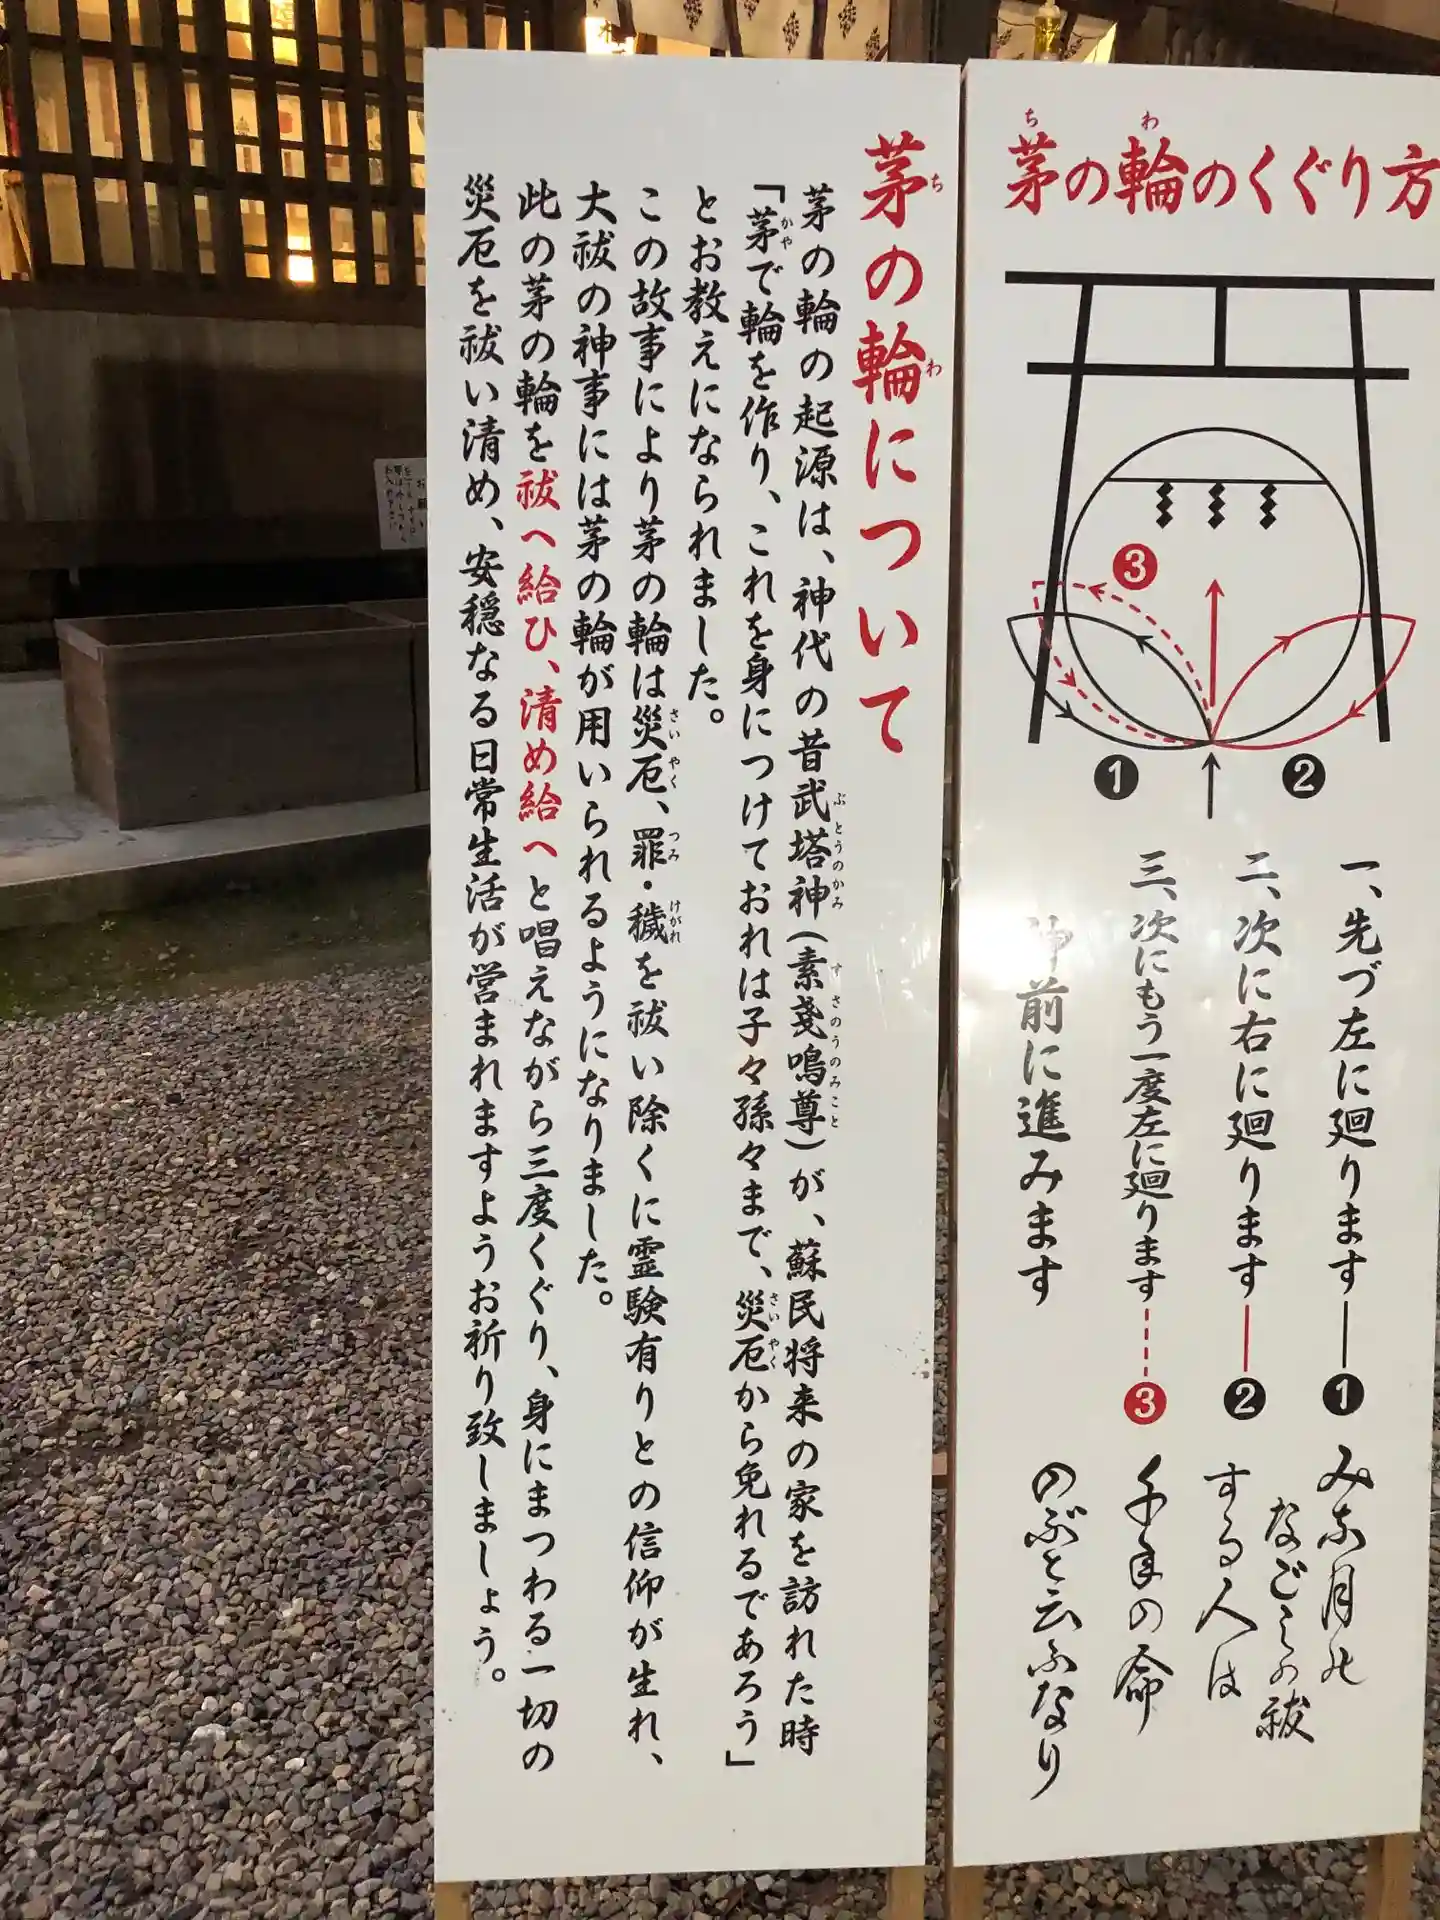 茅の輪のくぐり方
ち わ
❸
❶
❷
一、先づ左に廻ります ❶
二、次に右に廻ります ❷
三、次にもう一度左に廻ります ❸
神前に進みます
みな月の
なごしの祓
する人は
千年の命
のぶと云ふなり
茅の輪について
ち わ
茅の輪の起源は、神代の昔武塔神(素戔嗚尊)が、蘇民将来の家を訪れた時
ぶとうのかみ すさのうのみこと
「茅で輪を作り、これを身につけておれは子々孫々まで、災厄から免れるであろう」
かや さいやく
とお教えになられました。
この故事により茅の輪は災厄、罪・穢を祓い除くに霊験有りとの信仰が生れ、
さいやく つみ けがれ
大祓の神事には茅の輪が用いられるようになりました。
此の茅の輪を祓へ給ひ、清め給へと唱えながら三度くぐり、身にまつわる一切の
災厄を祓い清め、安穏なる日常生活が営まれますようお祈り致しましょう。